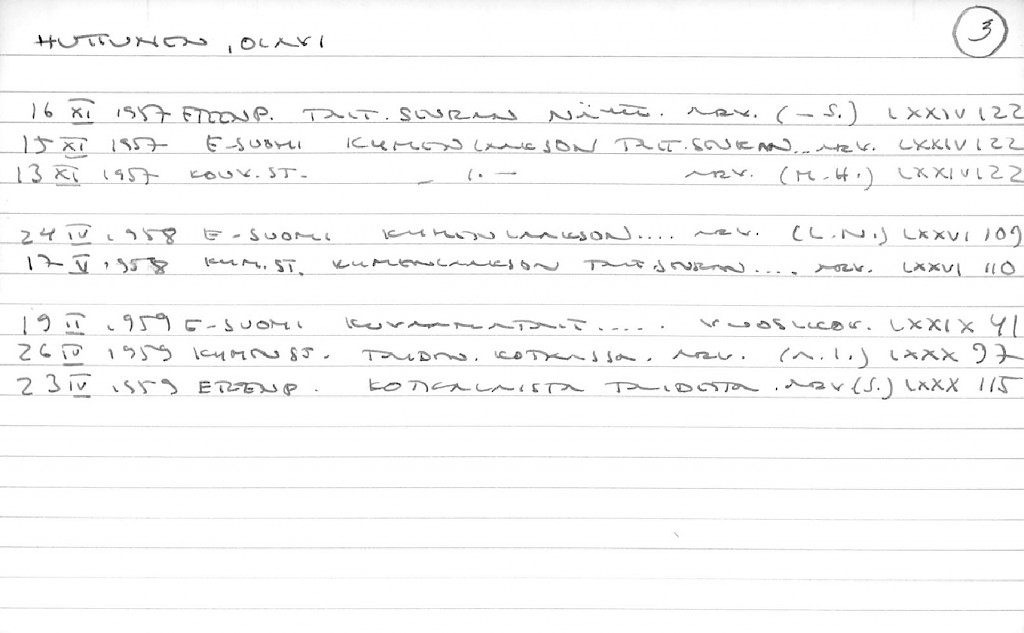 HUTTUNEN, OLAVI
3
16 XI 1957 ETEENP. TAIT. SEURAN NÄYTT. ARV. (-S.) LXXIV 122
15 XI 1957 E-SUOMI KYMENLAAKSON TAIT. SEURAN.. ARV. LXXIV 122
13 XI 1957 KOUV. ST. — 1. — ARV. (M.H.) LXXIV 122
24 IV 1958 E-SUOMI KYMENLAAKSON.... ARV. (L.N.) LXXVI 109
17 V 1958 KYM. ST. KYMENLAAKSON TAIT. SEURAN.... ARV. LXXVI 110
19 II 1959 E-SUOMI KUVAAMATAIT..... VUOSIKOK. LXXIX 41
26 IV 1959 KYMIN ST. TAIDEN. KOTKASSA. ARV. (A.I.) LXXX 97
23 IV 1959 ETEENP. KOTKALAISTA TAIDETTA. ARV (S.) LXXX 115